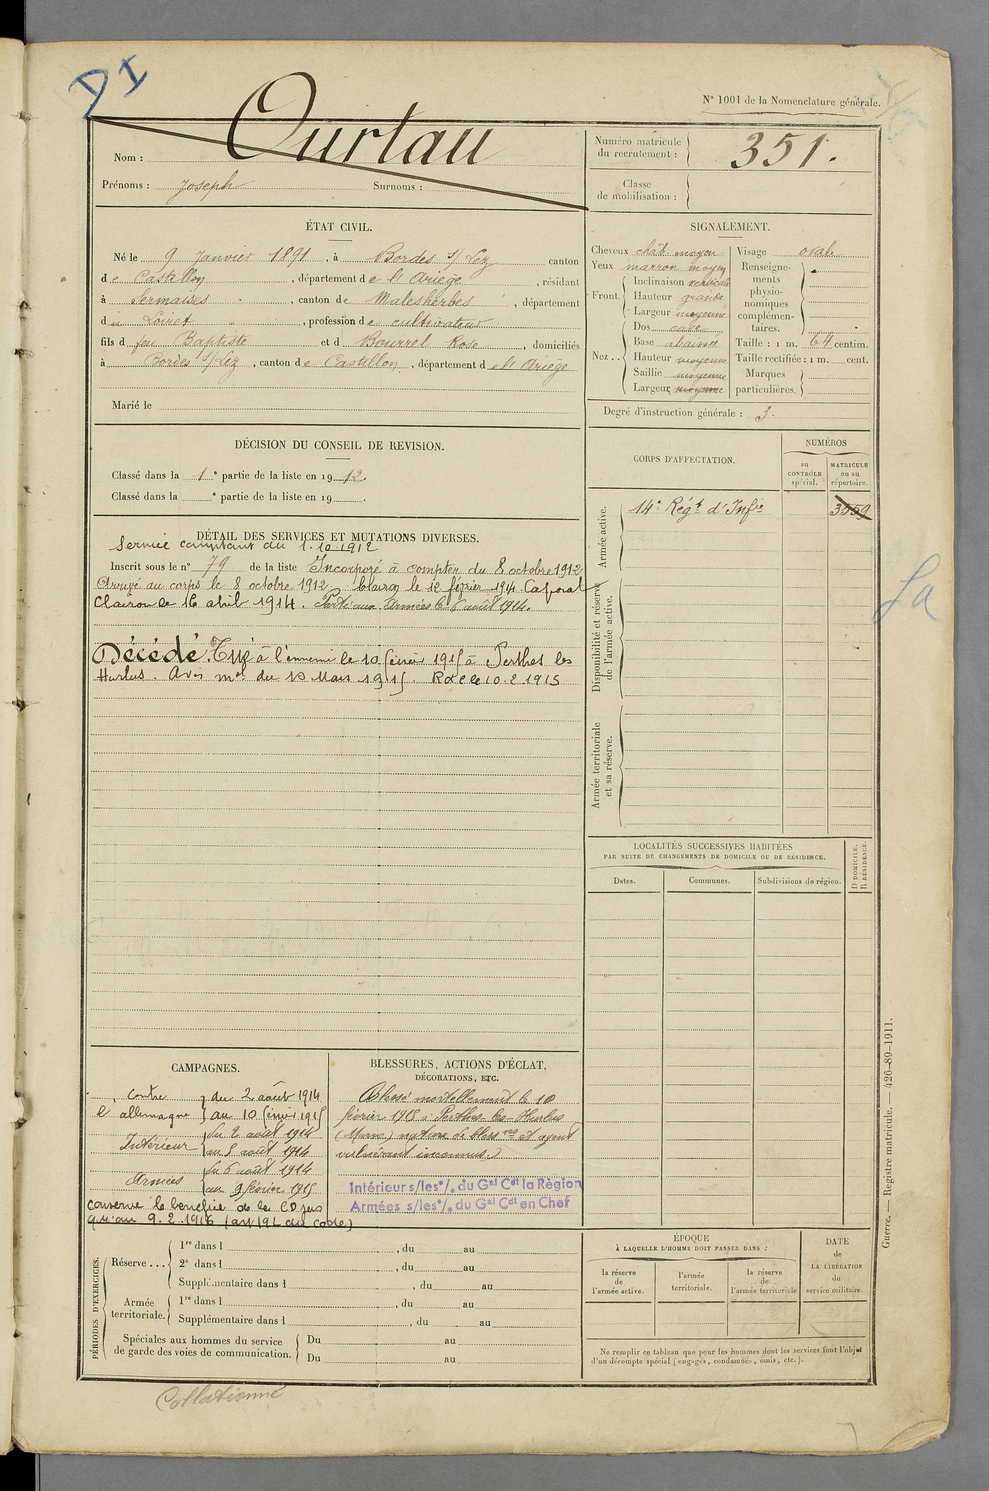 DI
N° 1001 de la Nomenclature générale.
Nom : Ourtau
Prénoms : Joseph Surnoms :
Numéro matricule du recrutement : 351.
Classe de mobilisation :
ÉTAT CIVIL.
Né le 9 Janvier 1891, à Bordes s/Lez canton
de Castillon, département de l'Ariège, résidant
à Sermaises, canton de Malesherbes, département
du Loiret, profession de cultivateur
fils d feu Baptiste et d Bourrel Rose, domiciliés
à Bordes s/Lez, canton de Castillon, département de l'Ariège
Marié le
SIGNALEMENT.
Cheveux chât moyen
Yeux marron moyen
Front. Inclinaison verticale
Hauteur grande
Largeur moyenne
Nez . . Dos cave
Base abaissée
Hauteur moyenne
Saillie moyenne
Largeur moyenne
Visage ovale
Renseignements physionomiques complémentaires.
Taille : 1 m. 64 centim.
Taille rectifiée : 1 m. cent.
Marques particulières.
Degré d'instruction générale : 3.
DÉCISION DU CONSEIL DE REVISION.
Classé dans la 1e partie de la liste en 1912
Classé dans la e partie de la liste en 19 .
CORPS D'AFFECTATION.
NUMÉROS
AU CONTRÔLE spécial.
MATRICULE ou au répertoire.
Armée active.
14e Régt d'Infie 3559
Disponibilité et réserve de l'armée active.
Armée territoriale et sa réserve.
La
DÉTAIL DES SERVICES ET MUTATIONS DIVERSES.
Service comptant du 1.10.1912
Inscrit sous le n° 79 de la liste Incorporé à compter du 8 octobre 1912
Arrivé au corps le 8 octobre 1912. Clairon le 12 février 1914. Caporal
Clairon le 16 abril 1914. Parti aux Armées le 6 août 1914.
Décédé. Tué à l'ennemi le 10 février 1915 à Perthes les
Hurlus. Avis mel du 10 Mars 1915. R.d.c le 10.2.1915
LOCALITÉS SUCCESSIVES HABITÉES
PAR SUITE DE CHANGEMENTS DE DOMICILE OU DE RÉSIDENCE.
Dates.
Communes.
Subdivisions de région.
D. DOMICILE. R. RÉSIDENCE.
CAMPAGNES.
contre l'allemagne du 2 août 1914
au 10 février 1915
Intérieur du 2 août 1914
au 5 août 1914
Armées du 6 août 1914
au 9 février 1915
conserve le bénéfice de la CD jus
qu'au 9.2.1916 (art 19 L du code)
BLESSURES, ACTIONS D'ÉCLAT,
DÉCORATIONS, ETC.
Blessé mortellement le 10
février 1915 à Perthes-les-Hurlus
(Marne) nature de bless res et agent
vulnérant inconnus.
Intérieur s/les °/. du Gal Cdt la Région
Armées s/les °/. du Gal Cdt en Chef
PÉRIODES D'EXERCICES.
Réserve . . .
1re dans l , du au
2e dans l , du au
Supplémentaire dans l , du au
Armée territoriale.
1re dans l , du au
Supplémentaire dans l , du au
Spéciales aux hommes du service de garde des voies de communication.
Du au
Du au
ÉPOQUE
À LAQUELLE L'HOMME DOIT PASSER DANS :
la réserve de l'armée active.
l'armée territoriale.
la réserve de l'armée territoriale
DATE de LA LIBÉRATION du service militaire.
Ne remplir ce tableau que pour les hommes dont les services font l'objet
d'un décompte spécial (engagés, condamnés, omis, etc.).
Guerre. — Registre matricule. — 426-89-1911.
Collationné